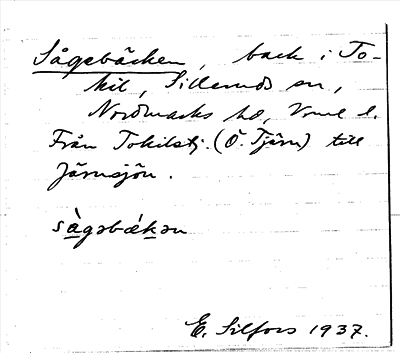 Sågebäcken, back i To-
kil, Silleruds sn,
Nordmarks hd, Vrml l.
Från Tokilstj. (Ö. Tjärn) till
Järnsjön.
sàgəbækən
E. Silfors 1937.